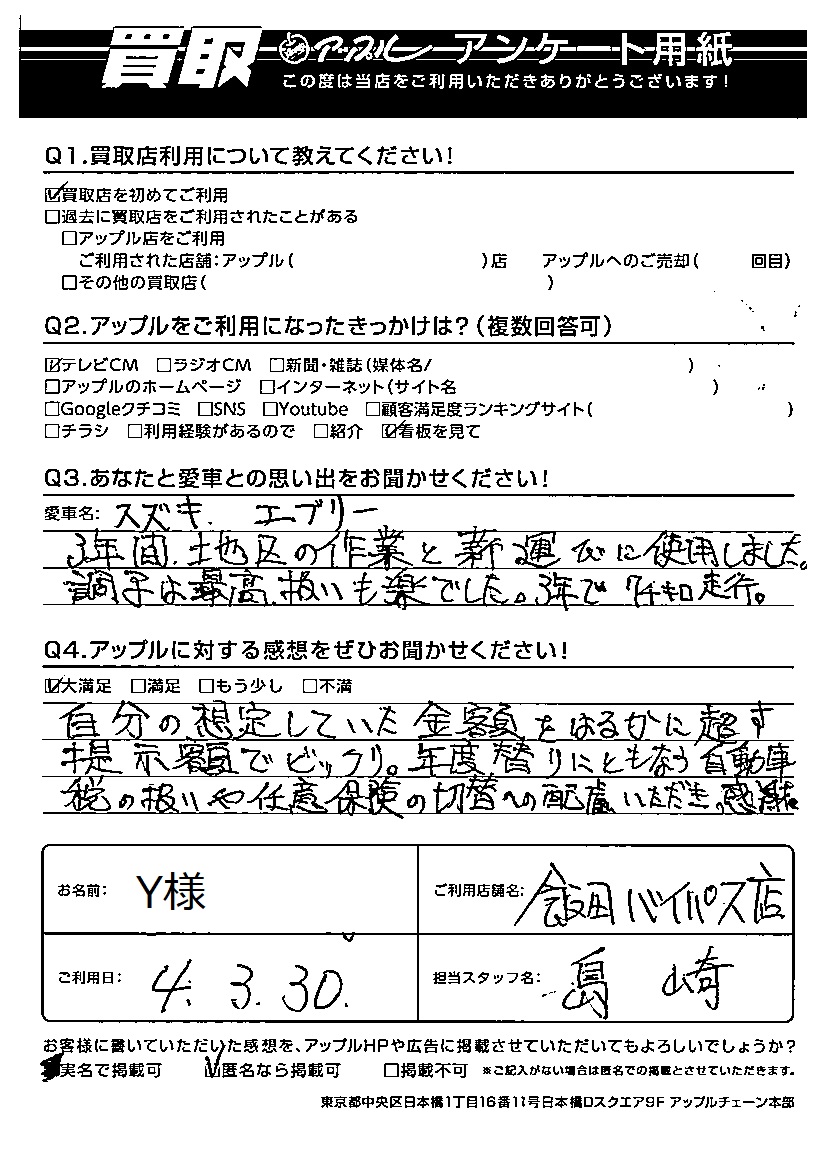 買取 アップル アンケート用紙
この度は当店をご利用いただきありがとうございます！
Q1.買取店利用について教えてください！
☑買取店を初めてご利用
□過去に買取店をご利用されたことがある
□アップル店をご利用
ご利用された店舗：アップル（ ）店 アップルへのご売却（ 回目）
□その他の買取店（ ）
Q2.アップルをご利用になったきっかけは？（複数回答可）
☑テレビCM □ラジオCM □新聞・雑誌（媒体名/ ）
□アップルのホームページ □インターネット（サイト名 ）
□Googleクチコミ □SNS □Youtube □顧客満足度ランキングサイト（ ）
□チラシ □利用経験があるので □紹介 ☑看板を見て
Q3.あなたと愛車との思い出をお聞かせください！
愛車名： スズキ エブリー
3年間、地区の作業と薪運びに使用しました。
調子は最高、扱いも楽でした。3年で7千キロ走行。
Q4.アップルに対する感想をぜひお聞かせください！
☑大満足 □満足 □もう少し □不満
自分の想定していた金額をはるかに超す
提示額でビックリ。年度替りにともなう自動車
税の扱いや任意保険の切替への配慮いただき、感謝。
お名前： Y様 ご利用店舗名： 飯田バイパス店
ご利用日： 4. 3. 30. 担当スタッフ名： 島崎
お客様に書いていただいた感想を、アップルHPや広告に掲載させていただいてもよろしいでしょうか？
実名で掲載可 ☑匿名なら掲載可 □掲載不可 ※ご記入がない場合は匿名での掲載とさせていただきます。
東京都中央区日本橋1丁目16番11号日本橋Dスクエア9F アップルチェーン本部